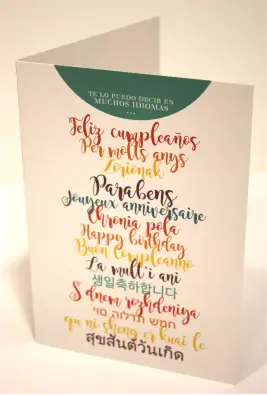 TE LO PUEDO DECIR EN
MUCHOS IDIOMAS
...
Feliz cumpleaños
Per molts anys
Zorionak
Parabens
Jouyeux anniversaire
Chronia pola
Happy birthday
Buon compleanno
La mult'i ani
생일축하합니다
S dnem rozhdeniya
qu ni sheng er kuai le
สุขสันต์วันเกิด